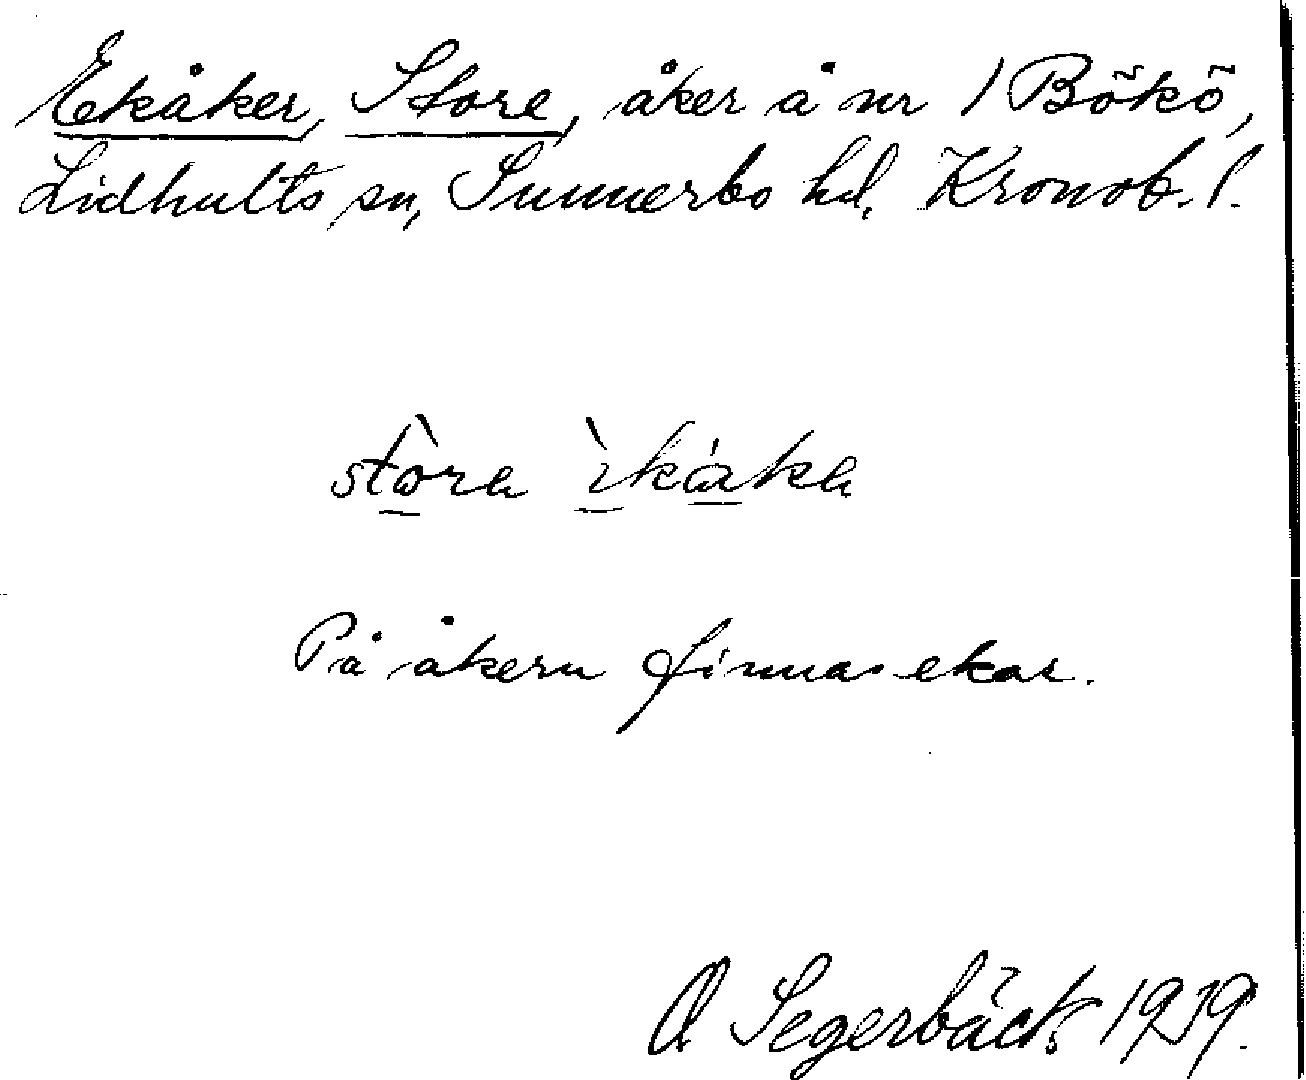 Ekåker, Store, åker å nr 1 Bökö,
Lidhults sn, Sunnerbo hd, Kronob. l.
stòra ìkáka
På åkern finnas ekar.
O Segerbäck 1939.